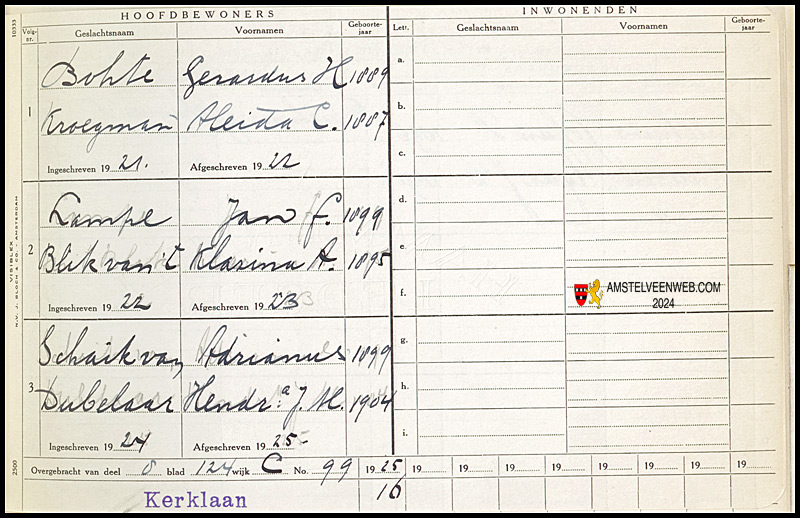 HOOFDBEWONERS INWONENDEN
Volg-nr. Geslachtsnaam Voornamen Geboorte-jaar Lett. Geslachtsnaam Voornamen Geboorte-jaar
Bohte Gerardus H 1889 a.
1
Kroegman Aleida C. 1887 b.
c.
Ingeschreven 1921. Afgeschreven 1922
Lampe Jan f. 1899 d.
2 Blik van 't Klasina A. 1895 e.
f.
AMSTELVEENWEB.COM
2024
Ingeschreven 1922 Afgeschreven 1923
Schaik van Adrianus 1899 g.
3 Dubelaar Hendr.a J. M. 1904 h.
i.
Ingeschreven 1924 Afgeschreven 1925
Overgebracht van deel 8 blad 124 wijk C No. 99 1925 19 19 19 19 19 19 19 19
16
Kerklaan
10333
VISIBLEX
N.V. J. BLOCH & CO. - AMSTERDAM
2500